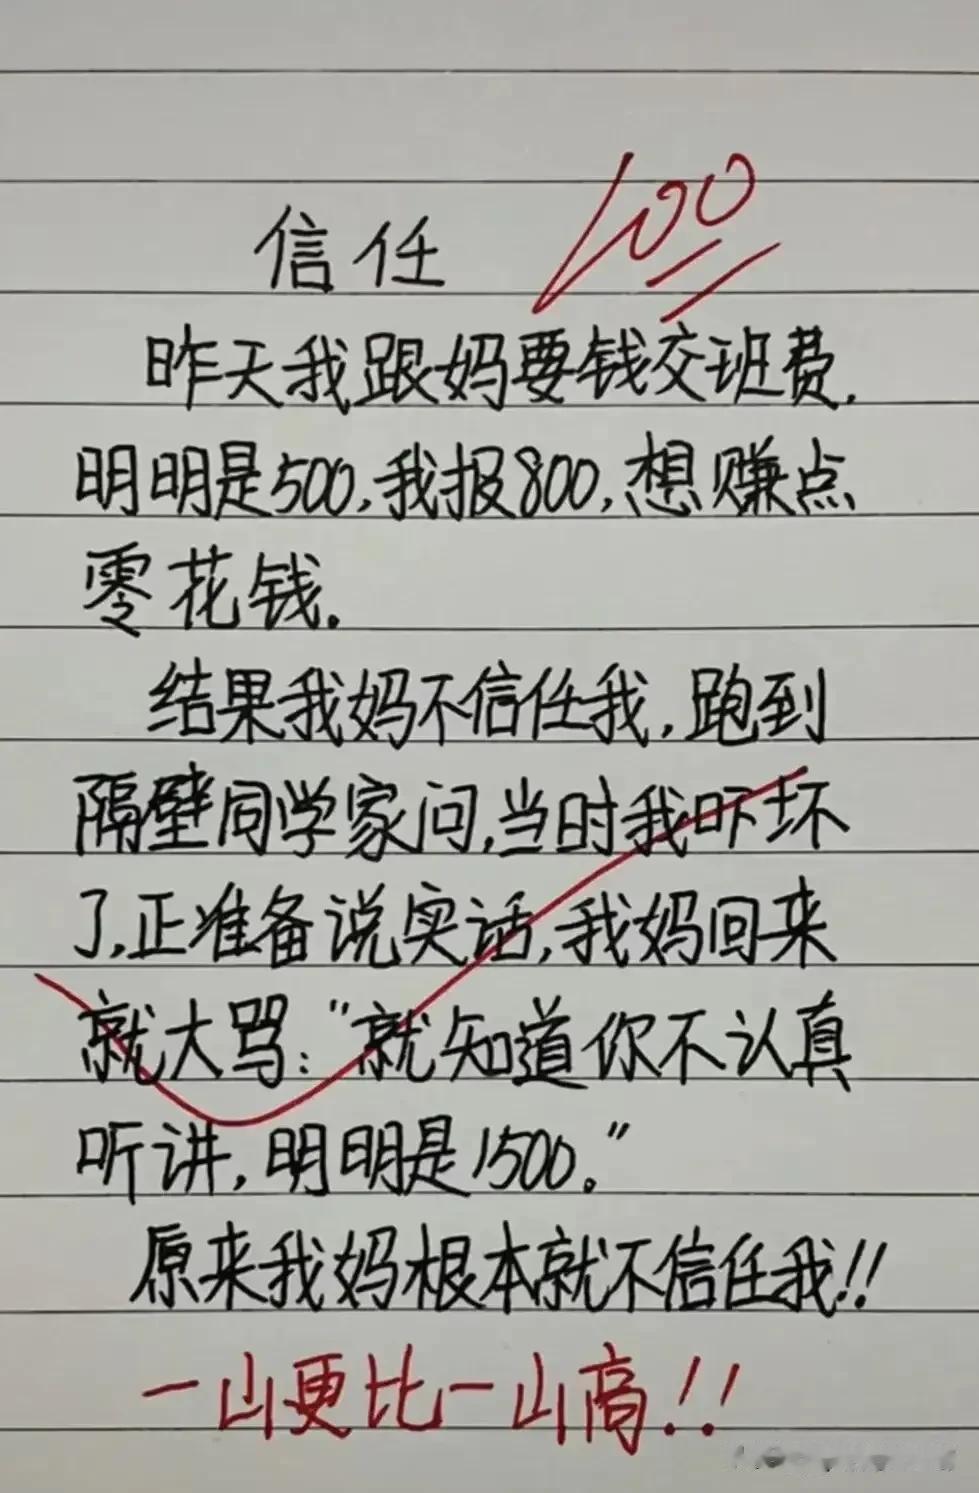 信任
100
昨天我跟妈要钱交班费.
明明是500,我报800,想赚点
零花钱.
结果我妈不信任我,跑到
隔壁同学家问,当时我吓坏
了,正准备说实话,我妈回来
就大骂:"就知道你不认真
听讲,明明是1500."
原来我妈根本就不信任我!!
一山更比一山高!!